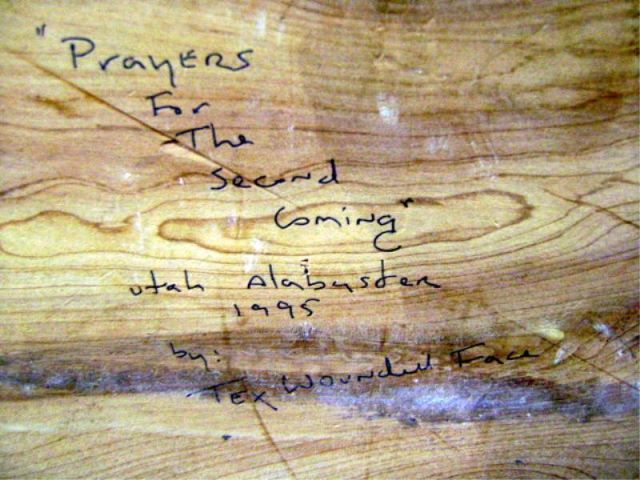 "Prayers
For
The
Second
Coming"
utah Alabuster
1995
by:
Tex Wounded Face